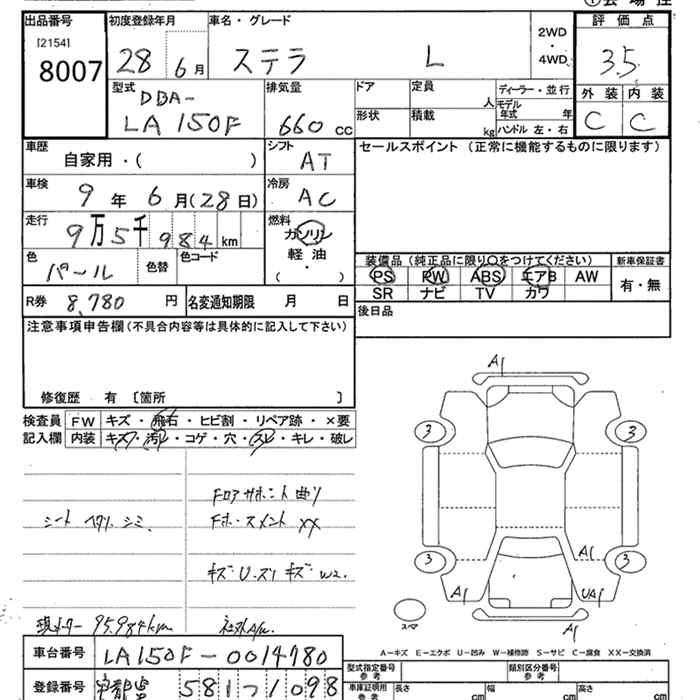 出品番号 初度登録年月 車名・グレード 2WD・4WD 評価点
[2154]
8007 28 6月 ステラ L 3.5
型式 排気量 ドア 定員 人 ディーラー・並行 外装 内装
DBA-
LA150F 660cc 形状 積載 kg モデル年式 年 C C
ハンドル 左・右
車歴 シフト セールスポイント (正常に機能するものに限ります)
自家用・( ) AT
車検 9年6月(28日) 冷房 AC
走行 9万5千984km 燃料 ガソリン
軽油
( ・ )
色 パール 色替 色コード
装備品 (純正品に限り○をつけてください) 新車保証書
PS PW ABS エアB AW 有・無
SR ナビ TV カワ
R券 8,780円 名変通知期限 月 日
後日品
注意事項申告欄(不具合内容等は具体的に記入して下さい)
修復歴 有 〔箇所 〕
検査員 記入欄
FW キズ・飛石・ヒビ割・リペア跡・×要
内装 キズ・汚レ・コゲ・穴・スレ・キレ・破レ
A1
3 3
Fロアサポート曲り
シート ヘタリ シミ.
XX
3 3
A1
キズU.スリキズW2.
A1 UA1
現メーター 95,984km 社外A/W.
スマ A1
A-キズ E-エクボ U-凹み W-補修跡 S-サビ C-腐食 XX-交換済
車台番号 LA150F-0014780
型式指定番号 参考 類別区分番号 参考
登録番号 宇都宮 581 1098
車庫証明用 参考 長さ cm 幅 cm 高さ cm